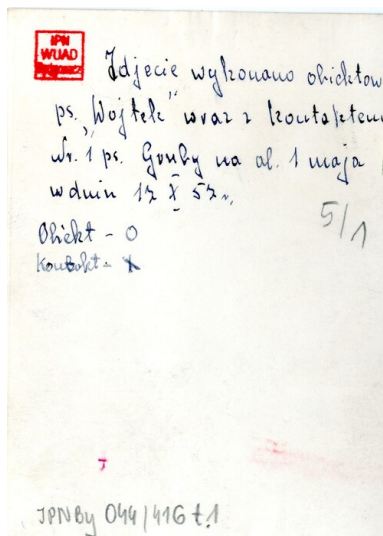 IPN
WUAD
Zdjęcie wykonano obiektow
ps. "Wojtek" wraz z kontaktem
Nr. 1 ps. Gruby na al. 1 maja
w dniu 17 X 57 r.
5/1
Obiekt - O
Kontakt - X
IPNBy 044/416 t.1